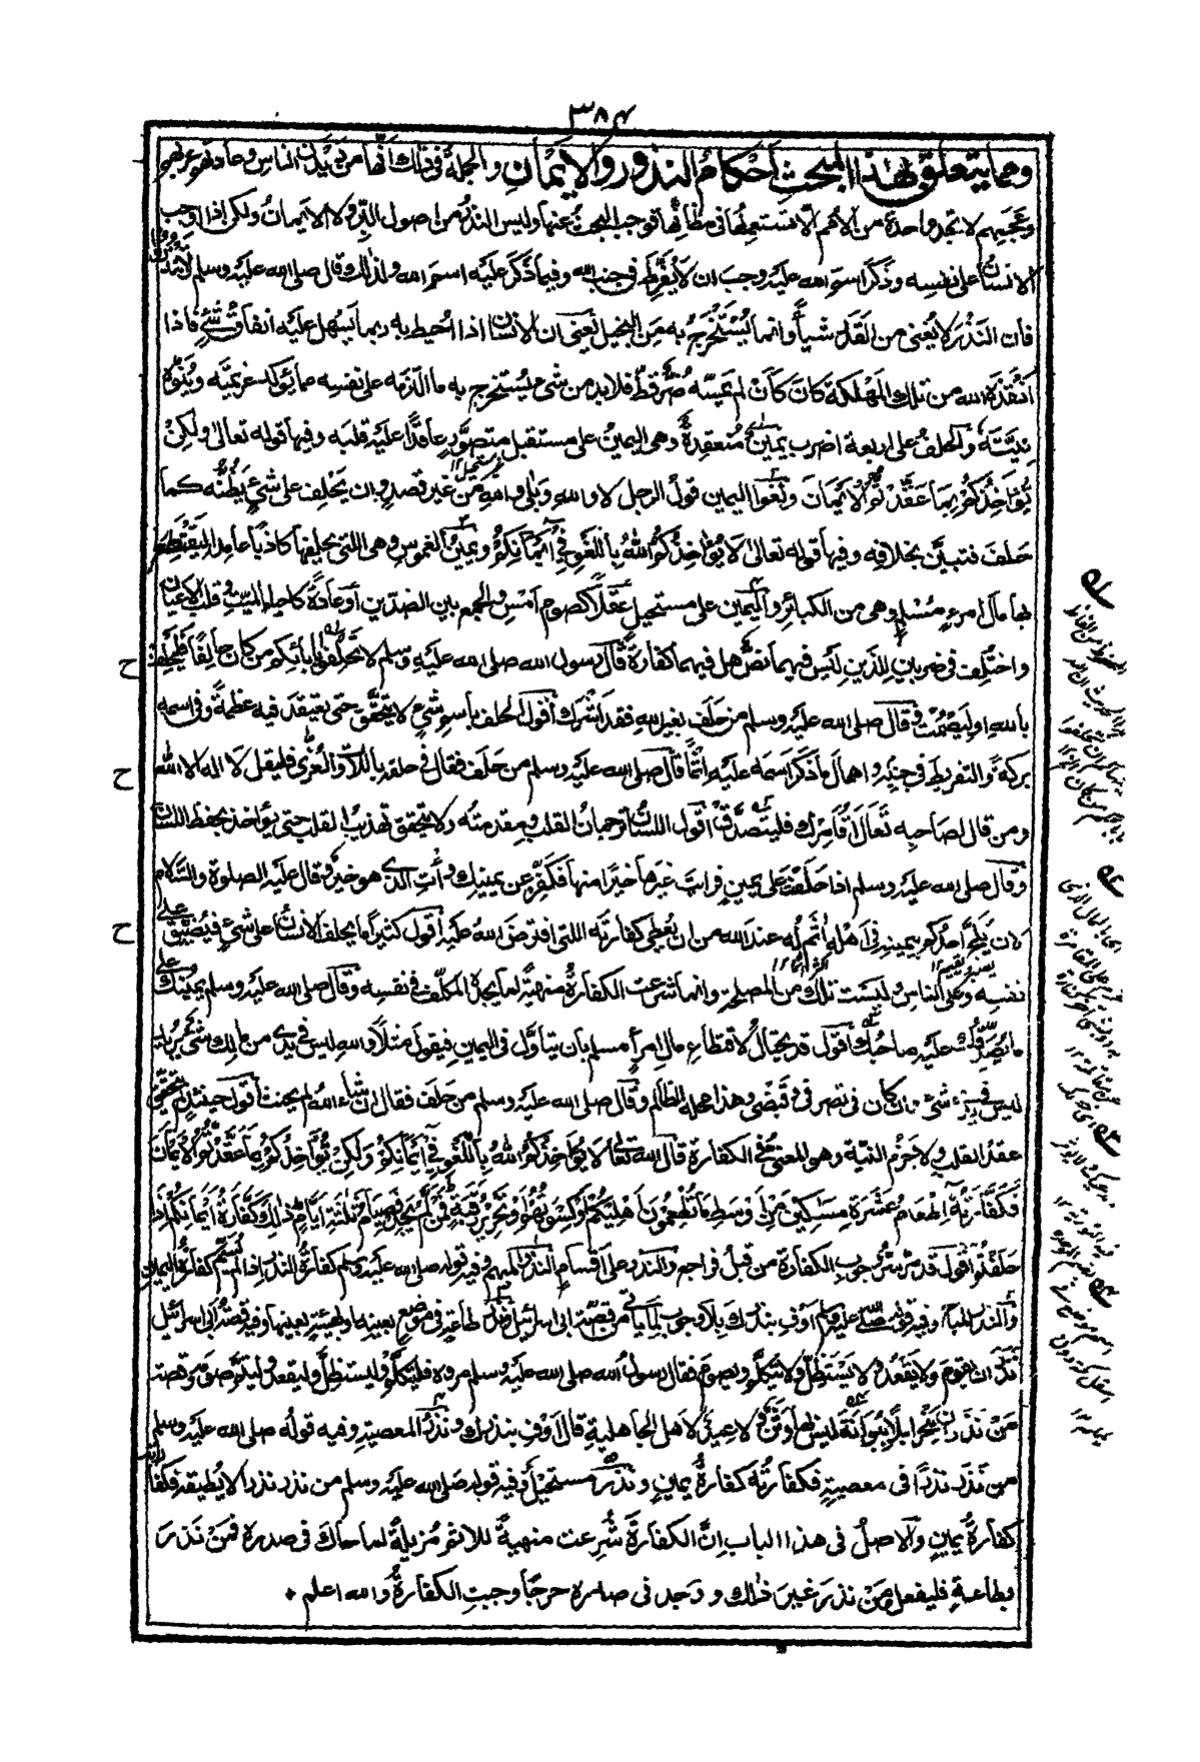 ٣٨٤
ومما يتعلق بهذا المبحث أحكام النذور والايمان والجملة في ذلك انها من ديدن الناس وعادتهم عربهم
وعجمهم لا تجد واحدة من الامم الا تستعملها في مظانها فوجب البحث عنها وليس النذر من اصول البر ولا الايمان ولكن اذا اوجب
الانسان على نفسه وذكر اسم الله عليه وجب ان لا يفرط في جنب الله وفيما ذكر عليه اسم الله ولذلك قال صلى الله عليه وسلم لا تنذروا
فان النذر لا يغني من القدر شيأ وانما يستخرج به من البخيل يعني ان الانسان اذا احيط به ربما يسهل عليه انفاق شيء فاذا
انقذه الله من تلك المهلكة كان كأن لم يمسه ضر قط فلا بد من شيء يستخرج به ما التزمه على نفسه مما يؤكد عزيمته وينوه
نيته والحلف على اربعة اضرب يمين منعقدة وهي اليمين على مستقبل متصور عاقدا عليه قلبه وفيها قوله تعالى ولكن
يؤاخذكم بما عقدتم الايمان ولغو اليمين قول الرجل لا والله وبلى والله من غير قصد وان يحلف على شيء يظنه كما
حلف فتبين بخلافه وفيها قوله تعالى لا يؤاخذكم الله باللغو في ايمانكم ويمين الغموس وهي التي يحلفها كاذبا عامدا ليقتطع
بها مال امرء مسلم وهي من الكبائر واليمين على مستحيل عقلا كصوم امس والجمع بين الضدين او عادة كاحياء الميت وقلب الاعيان
واختلف في ضربين الذين ليس فيهما نص هل فيهما كفارة قال رسول الله صلى الله عليه وسلم لا تحلفوا بآبائكم من كان حالفا فليحلف
بالله او ليصمت وقال صلى الله عليه وسلم من حلف بغير الله فقد اشرك أقول الحلف باسم شيء لا يتحقق حتى يعتقد فيه عظمة وفي اسمه
بركة والتفريط في جنبه واهمال ما ذكر اسمه عليه اثما قال صلى الله عليه وسلم من حلف فقال في حلفه باللات والعزى فليقل لا اله الا الله
ومن قال لصاحبه تعال اقامرك فليتصدق أقول اللسان ترجمان القلب ومقدمته ولا يتحقق تهذيب القلب حتى يؤاخذ بحفظ اللسان
وقال صلى الله عليه وسلم اذا حلفت على يمين فرأيت غيرها خيرا منها فكفر عن يمينك وأت الذي هو خير وقال عليه الصلوة والسلام
لان يلج احدكم بيمينه في اهله اثم له عند الله من ان يعطي كفارته التي افترض الله عليه أقول كثيرا ما يحلف الانسان على شيء فيضيق على
نفسه وعلى الناس وليست تلك من المصلحة وانما شرعت الكفارة منهية لما يجده المكلف في نفسه وقال صلى الله عليه وسلم يمينك على
ما يصدقك عليه صاحبك أقول قد يحتال لاقتطاع مال امرأ مسلم بان يتأول في اليمين فيقول مثلا والله ليس في يدي من مالك شيء يريد
ليس في يدي شيء وان كان في تصرفي وقبضي وهذا محله الظالم وقال صلى الله عليه وسلم من حلف فقال ان شاء الله لم يحنث أقول حينئذ لم يتحقق
عقد القلب ولا جزم النية وهو المعنى في الكفارة قال الله تعالى لا يؤاخذكم الله باللغو في ايمانكم ولكن يؤاخذكم بما عقدتم الايمان
فكفارته اطعام عشرة مساكين من اوسط ما تطعمون اهليكم او كسوتهم او تحرير رقبة فمن لم يجد فصيام ثلثة ايام ذلك كفارة ايمانكم اذا
حلفتم أقول قد مر سر وجوب الكفارة من قبل فراجع والنذر على اقسام النذر المبهم وفيه قوله صلى الله عليه وسلم كفارة النذر اذا لم يسم كفارة اليمين
والنذر المباح وفيه قوله صلى الله عليه وسلم اوف بنذرك بلا وجوب لما يأتي من قصة ابي اسرائيل ونذر طاعة في موضع بعينه او بهيئة بعينها وفيه قصة ابي اسرائيل
نذر ان يقوم ولا يقعد ولا يستظل ولا يتكلم ويصوم فقال رسول الله صلى الله عليه وسلم مروه فليتكلم وليستظل وليقعد وليتم صومه وقصة
من نذر ان ينحر ابلا ببوانة ليس بها وثن ولا عيد لاهل الجاهلية قال اوف بنذرك ونذر المعصية وفيه قوله صلى الله عليه وسلم
من نذر نذرا في معصية فكفارته كفارة يمين ونذر مستحيل وفيه قوله صلى الله عليه وسلم من نذر نذرا لا يطيقه فكفارته
كفارة يمين والاصل في هذا الباب ان الكفارة شرعت منهية للاثم مزيلة لما حاك في صدره فمن نذر
بطاعة فليفعل ومن نذر غير ذلك ووجد في صدره حرجا وجبت الكفارة والله اعلم